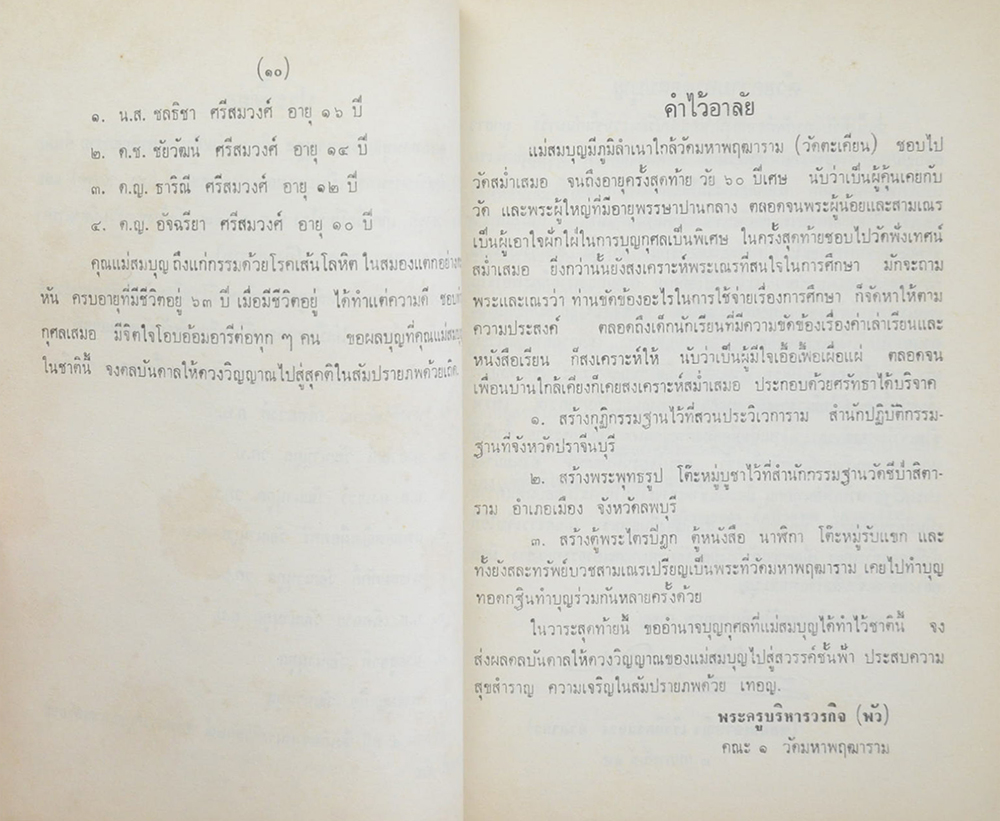 (๑๐)
๑. น.ส. ชลธิชา ศรีสมวงศ์ อายุ ๑๖ ปี
๒. ด.ช. ชัยวัฒน์ ศรีสมวงศ์ อายุ ๑๔ ปี
๓. ด.ญ. ธาริณี ศรีสมวงศ์ อายุ ๑๒ ปี
๔. ด.ญ. อัจฉรียา ศรีสมวงศ์ อายุ ๑๐ ปี
คุณแม่สมบุญ ถึงแก่กรรมด้วยโรคเส้นโลหิต ในสมองแตกอย่าง
หัน ครบอายุที่มีชีวิตอยู่ ๖๓ ปี เมื่อมีชีวิตอยู่ ได้ทำแต่ความดี
กุศลเสมอ มีจิตใจโอบอ้อมอารีต่อทุก ๆ คน ขอผลบุญที่คุณแม่สมบุญ
ในชาตินี้ จงดลบันดาลให้ดวงวิญญาณไปสู่สุคติในสัมปรายภพด้วยเถิด.
คำไว้อาลัย
แม่สมบุญมีภูมิลำเนาใกล้วัดมหาพฤฒาราม (วัดตะเคียน) ชอบไป
วัดสม่ำเสมอ จนถึงอายุครั้งสุดท้าย วัย ๖๐ ปีเศษ นับว่าเป็นผู้คุ้นเคยกับ
วัด และพระผู้ใหญ่ที่มีอายุพรรษาปานกลาง ตลอดจนพระผู้น้อยและสามเณร
เป็นผู้เอาใจฝักใฝ่ในการบุญกุศลเป็นพิเศษ ในครั้งสุดท้ายชอบไปวัดฟังเทศน์
สม่ำเสมอ ยิ่งกว่านั้นยังสงเคราะห์พระเณรที่สนใจในการศึกษา มักจะถาม
พระและเณรว่า ท่านขัดข้องอะไรในการใช้จ่ายเรื่องการศึกษา ก็จัดหาให้ตาม
ความประสงค์ ตลอดถึงเด็กนักเรียนที่มีความขัดข้องเรื่องค่าเล่าเรียนและ
หนังสือเรียน ก็สงเคราะห์ให้ นับว่าเป็นผู้มีใจเอื้อเฟื้อเผื่อแผ่ ตลอดจน
เพื่อนบ้านใกล้เคียงก็เคยสงเคราะห์สม่ำเสมอ ประกอบด้วยศรัทธาได้บริจาค
๑. สร้างกุฏิกรรมฐานไว้ที่สวนประวิเวการาม สำนักปฏิบัติกรรม-
ฐานที่จังหวัดปราจีนบุรี
๒. สร้างพระพุทธรูป โต๊ะหมู่บูชาไว้ที่สำนักกรรมฐานวัดชีป่าสิตา-
ราม อำเภอเมือง จังหวัดลพบุรี
๓. สร้างตู้พระไตรปิฎก ตู้หนังสือ นาฬิกา โต๊ะหมู่รับแขก และ
ทั้งยังสละทรัพย์บวชสามเณรเปรียญเป็นพระที่วัดมหาพฤฒาราม เคยไปทำบุญ
ทอดกฐินทำบุญร่วมกันหลายครั้งด้วย
ในวาระสุดท้ายนี้ ขออำนาจบุญกุศลที่แม่สมบุญได้ทำไว้ชาตินี้ จง
ส่งผลดลบันดาลให้ดวงวิญญาณของแม่สมบุญไปสู่สวรรค์ชั้นฟ้า ประสบความ
สุขสำราญ ความเจริญในสัมปรายภพด้วย เทอญ.
พระครูบริหารวรกิจ (พัว)
คณะ ๑ วัดมหาพฤฒาราม